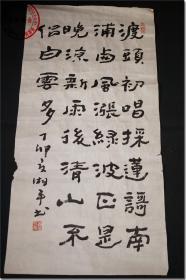 渡頭初唱採蓮謌南
浦卤風漲綠波正是
晚涼新雨後清山不
佀白雲多丁卯